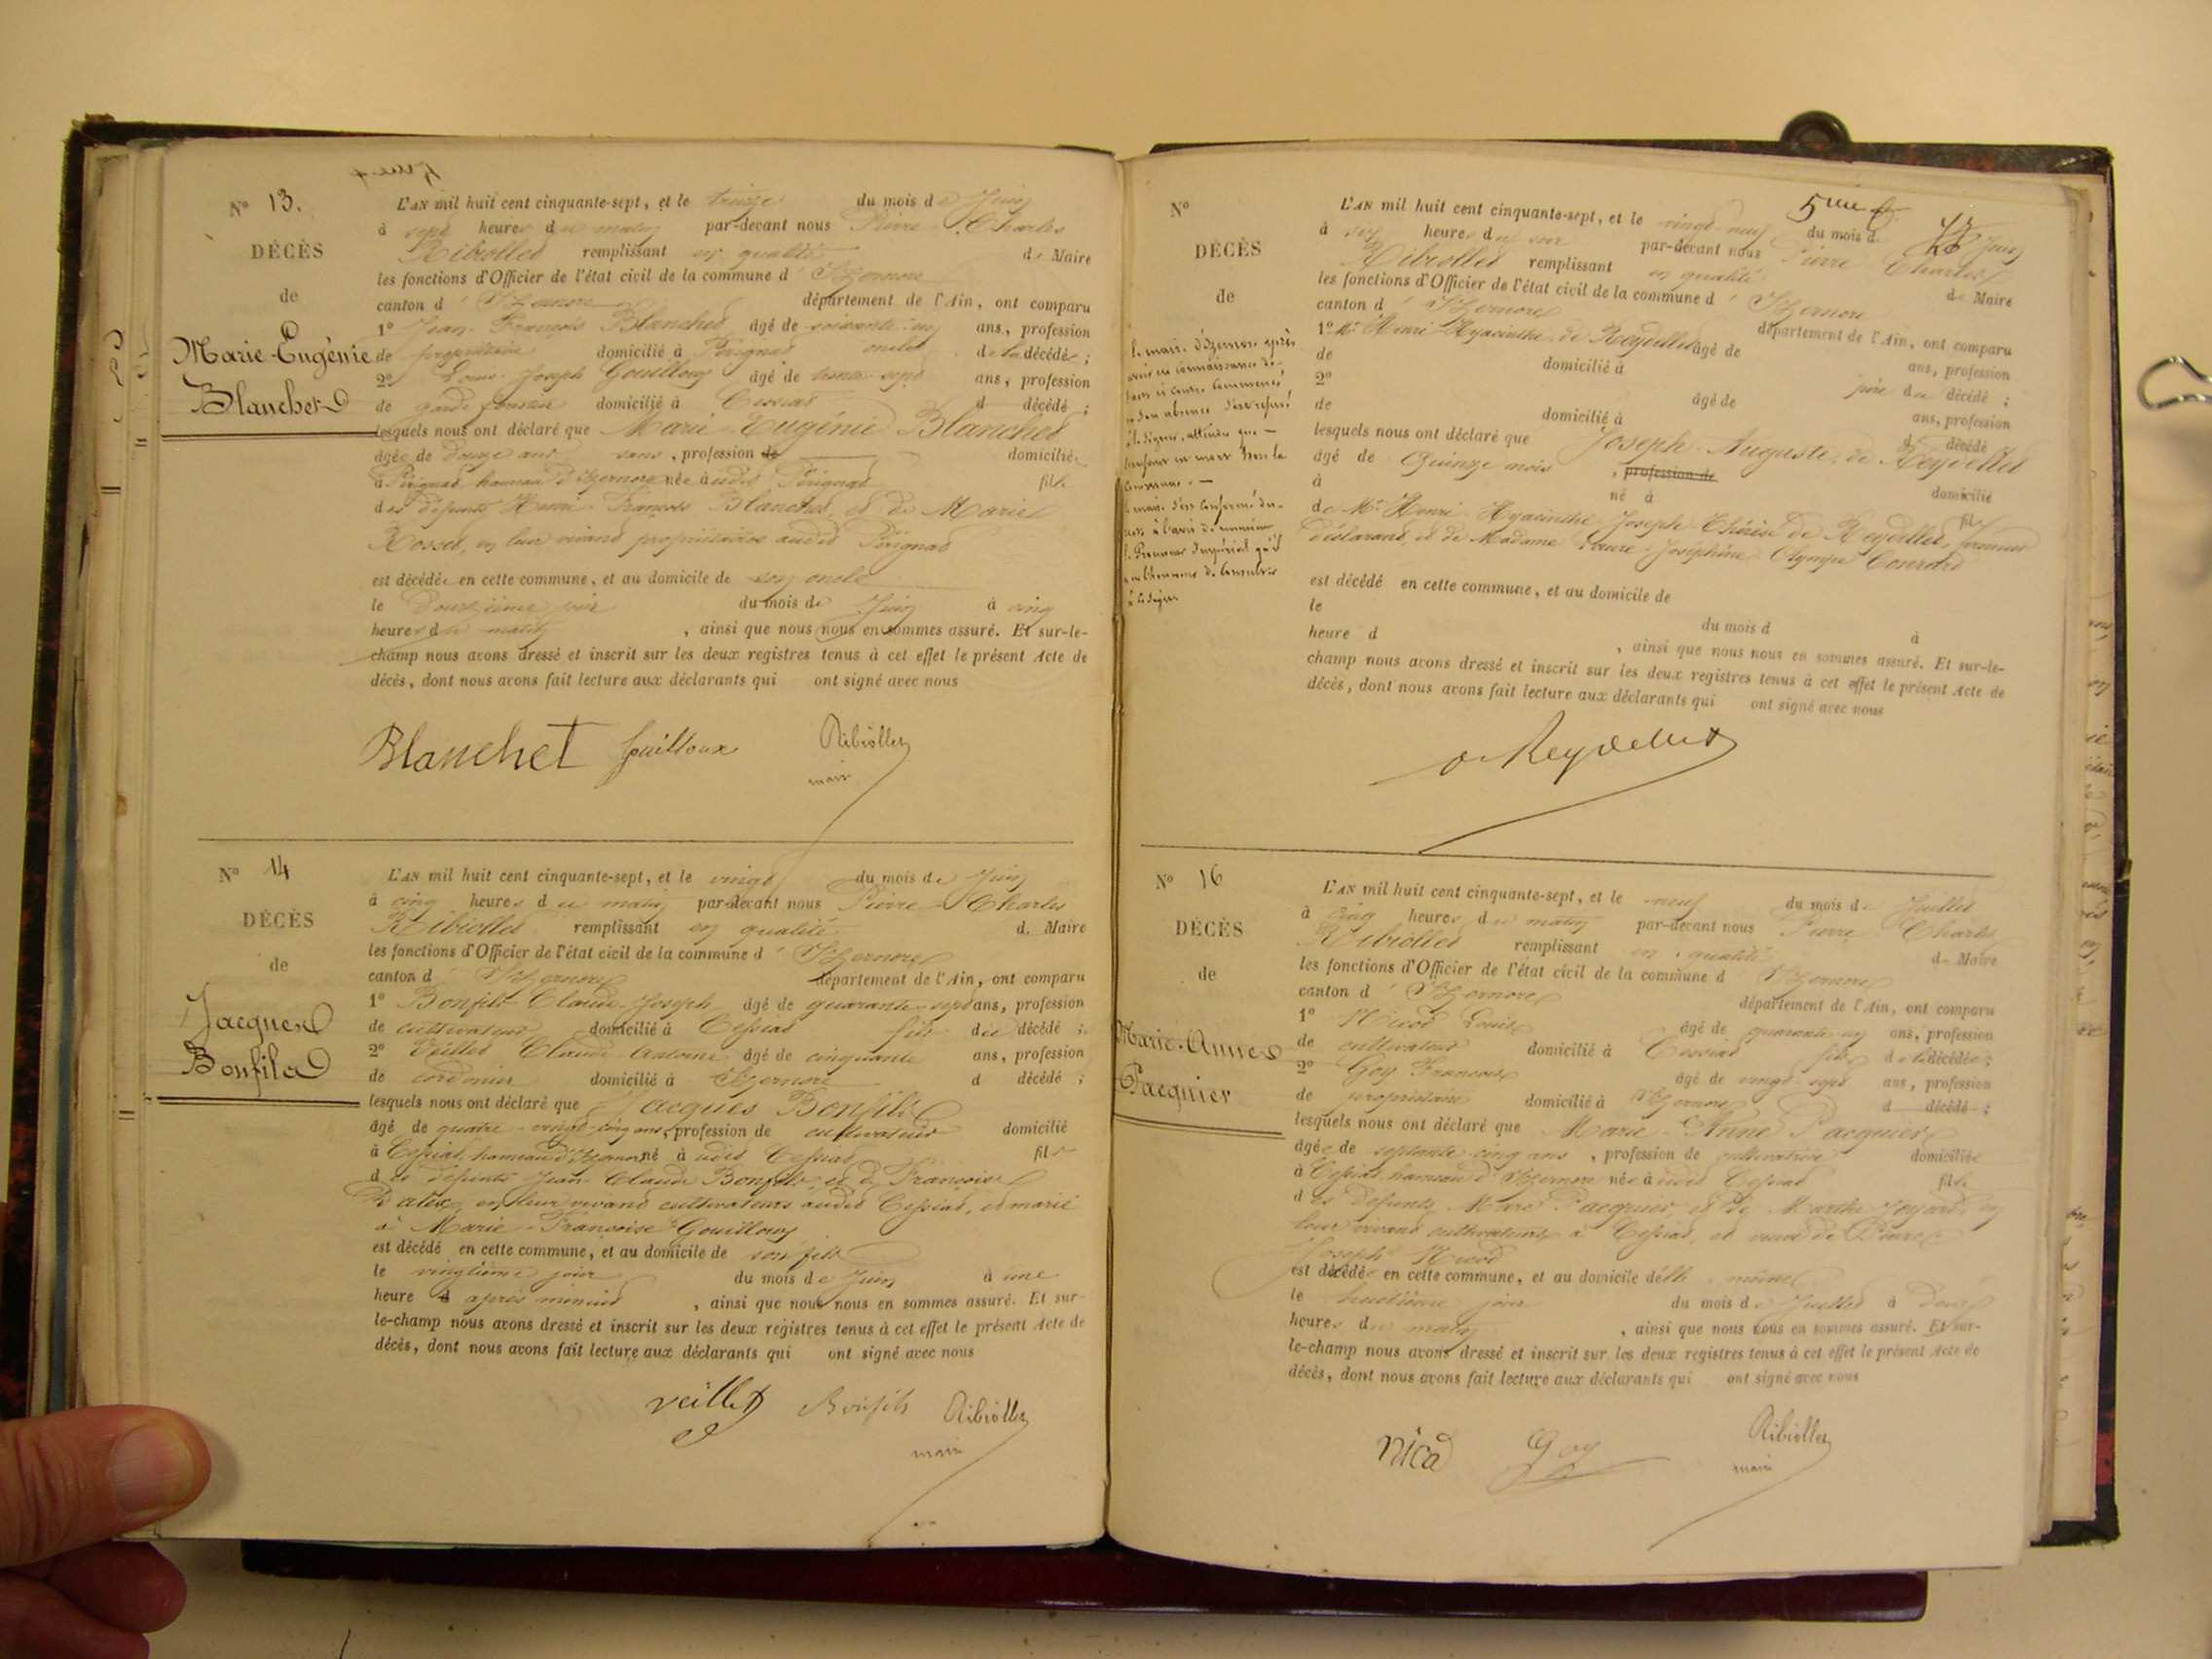 N° 13.
DÉCÈS
de
Marie-Eugénie
Blanchet
L'AN mil huit cent cinquante-sept, et le treize du mois de Juin
à sept heures du matin par-devant nous Pierre Charles
Ribiollet remplissant en qualité de Maire
les fonctions d'Officier de l'état civil de la commune d'Izernore
canton d'Izernore département de l'Ain, ont comparu
1° Jean-François Blanchet âgé de soixante-un ans, profession
de propriétaire domicilié à Pérignat oncle de la décédée ;
2° Louis-Joseph Gouilloux âgé de trente-sept ans, profession
de garde forestier domicilié à Cessiat d décédé ;
lesquels nous ont déclaré que Marie-Eugénie Blanchet
âgée de douze ans sans, profession de domiciliée
à Pérignat, hameau d'Izernore née audit Pérignat fille
des défunts Henri-François Blanchet, et de Marie
Rosset, en leur vivant propriétaires audit Pérignat
est décédée en cette commune, et au domicile de son oncle
le douzième jour du mois de Juin à cinq
heures du matin, ainsi que nous nous en sommes assuré. Et sur-le-
champ nous avons dressé et inscrit sur les deux registres tenus à cet effet le présent Acte de
décès, dont nous avons fait lecture aux déclarants qui ont signé avec nous
Blanchet Gouilloux Ribiollet
maire
N° 14
DÉCÈS
de
Jacques
Bonfils
L'AN mil huit cent cinquante-sept, et le vingt du mois de Juin
à cinq heures du matin par-devant nous Pierre Charles
Ribiollet remplissant en qualité de Maire
les fonctions d'Officier de l'état civil de la commune d'Izernore
canton d'Izernore département de l'Ain, ont comparu
1° Bonfils Claude-Joseph âgé de quarante-sept ans, profession
de cultivateur domicilié à Cessiat fils du décédé ;
2° Veillet Claude Antoine âgé de cinquante ans, profession
de cordonier domicilié à Izernore d décédé ;
lesquels nous ont déclaré que Jacques Bonfils
âgé de quatre-vingt-cinq ans, profession de cultivateur domicilié
à Cessiat, hameau d'Izernore né audit Cessiat fils
des défunts Jean-Claude Bonfils, et de Françoise
en leur vivant cultivateurs audit Cessiat, et marié
à Marie-Françoise Gouilloux
est décédé en cette commune, et au domicile de son fils
le vingtième jour du mois de Juin à une
heure d après minuit, ainsi que nous nous en sommes assuré. Et sur-
le-champ nous avons dressé et inscrit sur les deux registres tenus à cet effet le présent Acte de
décès, dont nous avons fait lecture aux déclarants qui ont signé avec nous
Veillet Bonfils Ribiollet
maire
5me
N°
DÉCÈS
de
L'AN mil huit cent cinquante-sept, et le vingt-neuf du mois de Juin
à six heures du soir par-devant nous Pierre Charles
Ribiollet remplissant en qualité de Maire
les fonctions d'Officier de l'état civil de la commune d'Izernore
canton d'Izernore département de l'Ain, ont comparu
1° Mr Henri-Hyacinthe de Reydellet âgé de ans, profession
de domicilié à père du décédé ;
2° âgé de ans, profession
de domicilié à d décédé
lesquels nous ont déclaré que Joseph-Auguste de Reydellet
âgé de Quinze mois, profession de domicilié
à né à fils
de Mr Henri-Hyacinthe-Joseph-Thérèse de Reydellet, premier
déclarant, et de Madame Josephine Olympe
est décédé en cette commune, et au domicile de
le du mois d à
heure d, ainsi que nous nous en sommes assuré. Et sur-le-
champ nous avons dressé et inscrit sur les deux registres tenus à cet effet le présent Acte de
décès, dont nous avons fait lecture aux déclarants qui ont signé avec nous
le maire d'Izernore après
avoir eu connaissance de
commencé
son absence s'est refusé
à le signer, attendu que
commune. —
le maire s'est conformé
à l'avis de monsieur
le Procureur Impérial qu'il
à le signer
de Reydellet
N° 16
DÉCÈS
de
Marie-Anne
Pacquier
L'AN mil huit cent cinquante-sept, et le neuf du mois de Juillet
à cinq heures du matin par-devant nous Pierre Charles
Ribiollet remplissant en qualité de Maire
les fonctions d'Officier de l'état civil de la commune d'Izernore
canton d'Izernore département de l'Ain, ont comparu
1° Nicod Louis âgé de quarante-un ans, profession
de cultivateur domicilié à Cessiat fils de la décédée ;
2° Goy François âgé de vingt-sept ans, profession
de propriétaire domicilié à Izernore d décédé ;
lesquels nous ont déclaré que Marie-Anne Pacquier
âgée de septante-cinq ans, profession de cultivatrice domiciliée
à Cessiat hameau d'Izernore née audit Cessiat fille
des défunts Marc Pacquier et de Marthe en
leur vivant cultivateurs à Cessiat, et veuve de Pierre
Joseph Nicod
est décédée en cette commune, et au domicile d'elle-même
le huitième jour du mois de Juillet à deux
heures du matin, ainsi que nous nous en sommes assuré. Et sur-
le-champ nous avons dressé et inscrit sur les deux registres tenus à cet effet le présent Acte de
décès, dont nous avons fait lecture aux déclarants qui ont signé avec nous
nicod Goy Ribiollet
maire